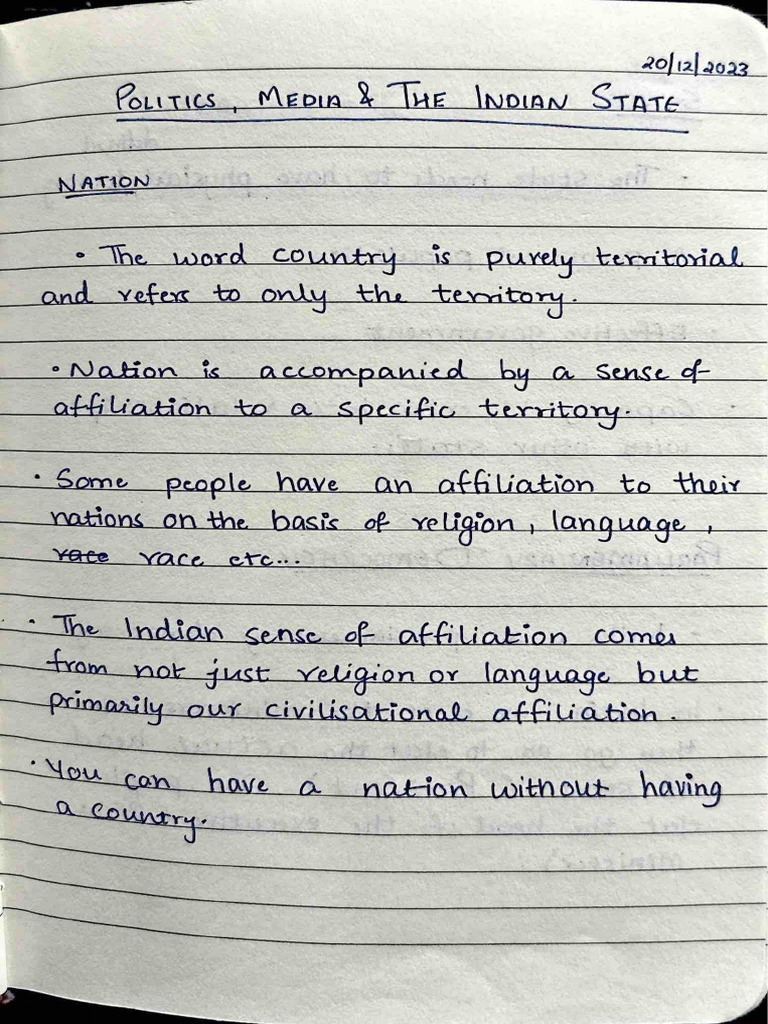 20/12/2023
POLITICS, MEDIA & THE INDIAN STATE
NATION
• The word country is purely territorial
and refers to only the territory.
• Nation is accompanied by a sense of
affiliation to a specific territory.
• Some people have an affiliation to their
nations on the basis of religion, language,
race race etc...
• The Indian sense of affiliation comes
from not just religion or language but
primarily our civilisational affiliation.
• You can have a nation without having
a country.